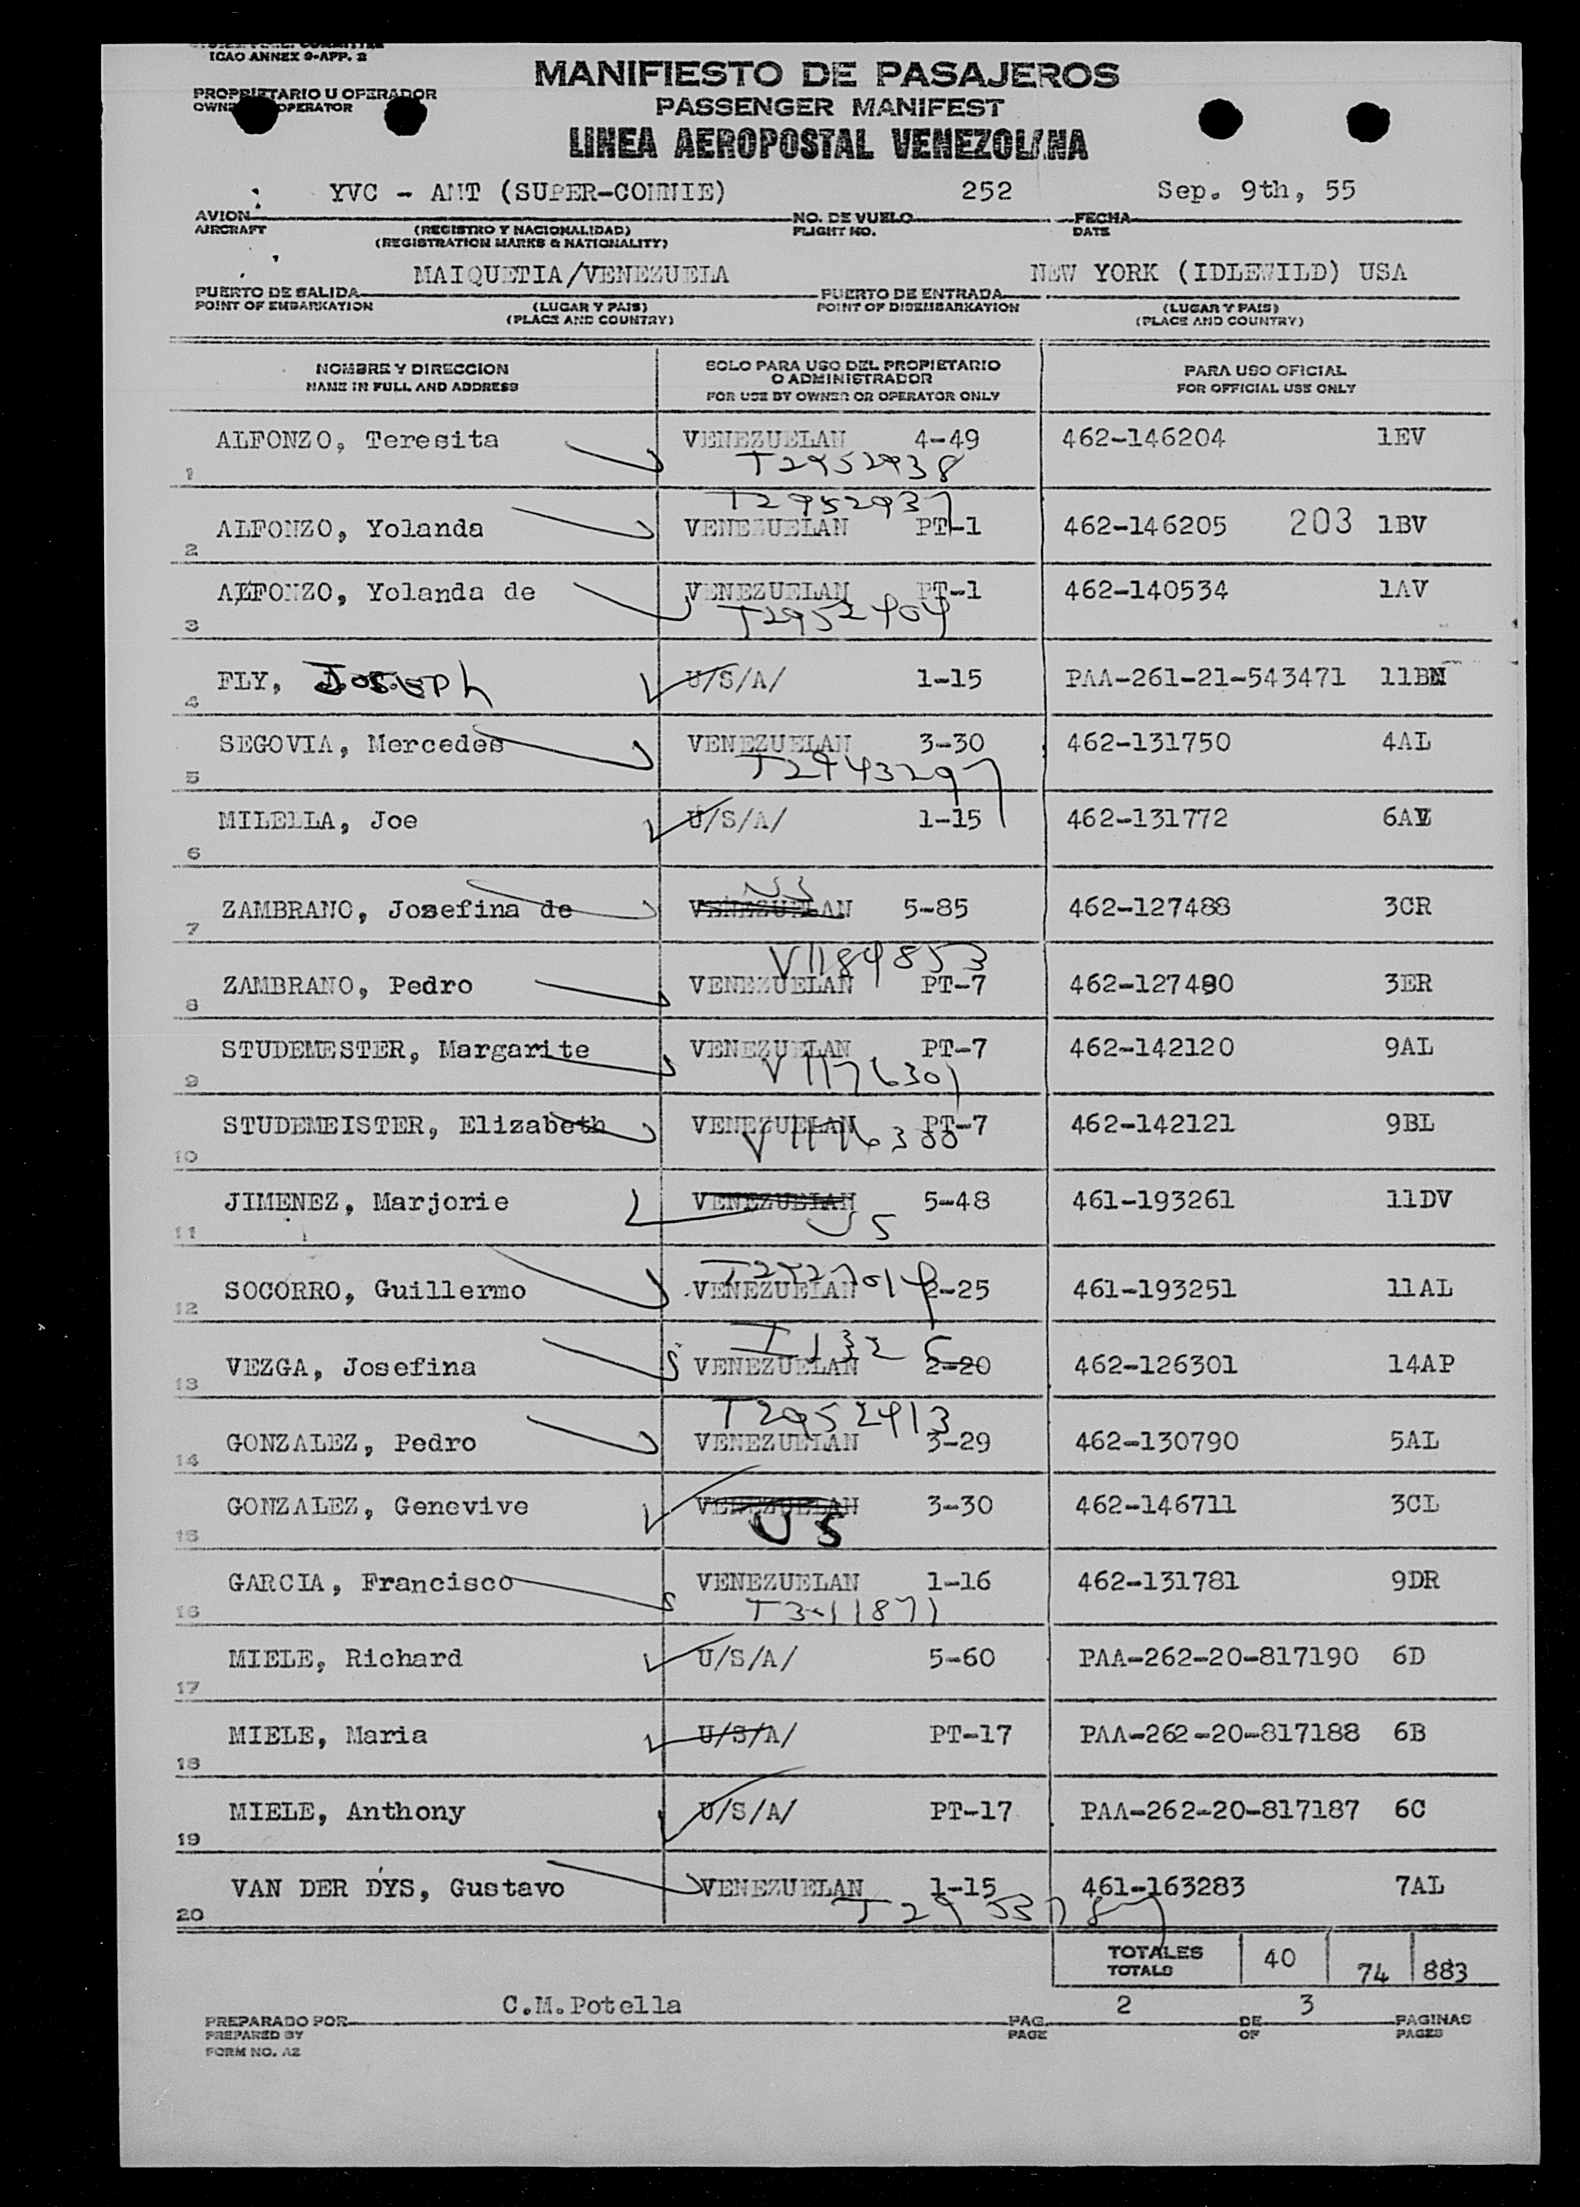 ICAO ANNEX 9-APP. 2
PROPRIETARIO U OPERADOR
OPERATOR
MANIFIESTO DE PASAJEROS
PASSENGER MANIFEST
LINEA AEROPOSTAL VENEZOLANA
YVC - ANT (SUPER-CONNIE) 252 Sep. 9th, 55
AVION NO. DE VUELO FECHA
AIRCRAFT (REGISTRO Y NACIONALIDAD) FLIGHT NO. DATE
(REGISTRATION MARKS & NATIONALITY)
MAIQUETIA/VENEZUELA NEW YORK (IDLEWILD) USA
PUERTO DE SALIDA PUERTO DE ENTRADA
POINT OF EMBARKATION (LUGAR Y PAIS) POINT OF DISEMBARKATION (LUGAR Y PAIS)
(PLACE AND COUNTRY) (PLACE AND COUNTRY)
NOMBRE Y DIRECCION SOLO PARA USO DEL PROPIETARIO PARA USO OFICIAL
NAME IN FULL AND ADDRESS O ADMINISTRADOR FOR OFFICIAL USE ONLY
FOR USE BY OWNER OR OPERATOR ONLY
ALFONZO, Teresita VENEZUELAN 4-49 462-146204 1EV
1 T2952938
T2952937
2 ALFONZO, Yolanda VENEZUELAN PT-1 462-146205 203 1BV
ALFONZO, Yolanda de VENEZUELAN PT-1 462-140534 1AV
3 T2952904
4 FLY, Joseph U/S/A/ 1-15 PAA-261-21-543471 11BN
SEGOVIA, Mercedes VENEZUELAN 3-30 462-131750 4AL
5 T2943297
MILELLA, Joe U/S/A/ 1-15 462-131772 6AL
6
7 ZAMBRANO, Josefina de VENEZUELAN 5-85 462-127488 3CR
V1184853
8 ZAMBRANO, Pedro VENEZUELAN PT-7 462-127490 3ER
STUDEMESTER, Margarite VENEZUELAN PT-7 462-142120 9AL
9 V1176301
STUDEMEISTER, Elizabeth VENEZUELAN PT-7 462-142121 9BL
10 V1176300
JIMENEZ, Marjorie VENEZUELAN 5-48 461-193261 11DV
11 US
12 SOCORRO, Guillermo VENEZUELAN 2-25 461-193251 11AL
13 VEZGA, Josefina VENEZUELAN 2-20 462-126301 14AP
T2952913
14 GONZALEZ, Pedro VENEZUELAN 3-29 462-130790 5AL
GONZALEZ, Genevive VENEZUELAN 3-30 462-146711 3CL
15 US
GARCIA, Francisco VENEZUELAN 1-16 462-131781 9DR
16
MIELE, Richard U/S/A/ 5-60 PAA-262-20-817190 6D
17
MIELE, Maria U/S/A/ PT-17 PAA-262-20-817188 6B
18
MIELE, Anthony U/S/A/ PT-17 PAA-262-20-817187 6C
19
VAN DER DYS, Gustavo VENEZUELAN 1-15 461-163283 7AL
20
TOTALES 40 74 883
TOTALS
C.M.Potella 2 3
PREPARADO POR PAG. DE PAGINAS
PREPARED BY PAGE OF PAGES
FORM NO. A2